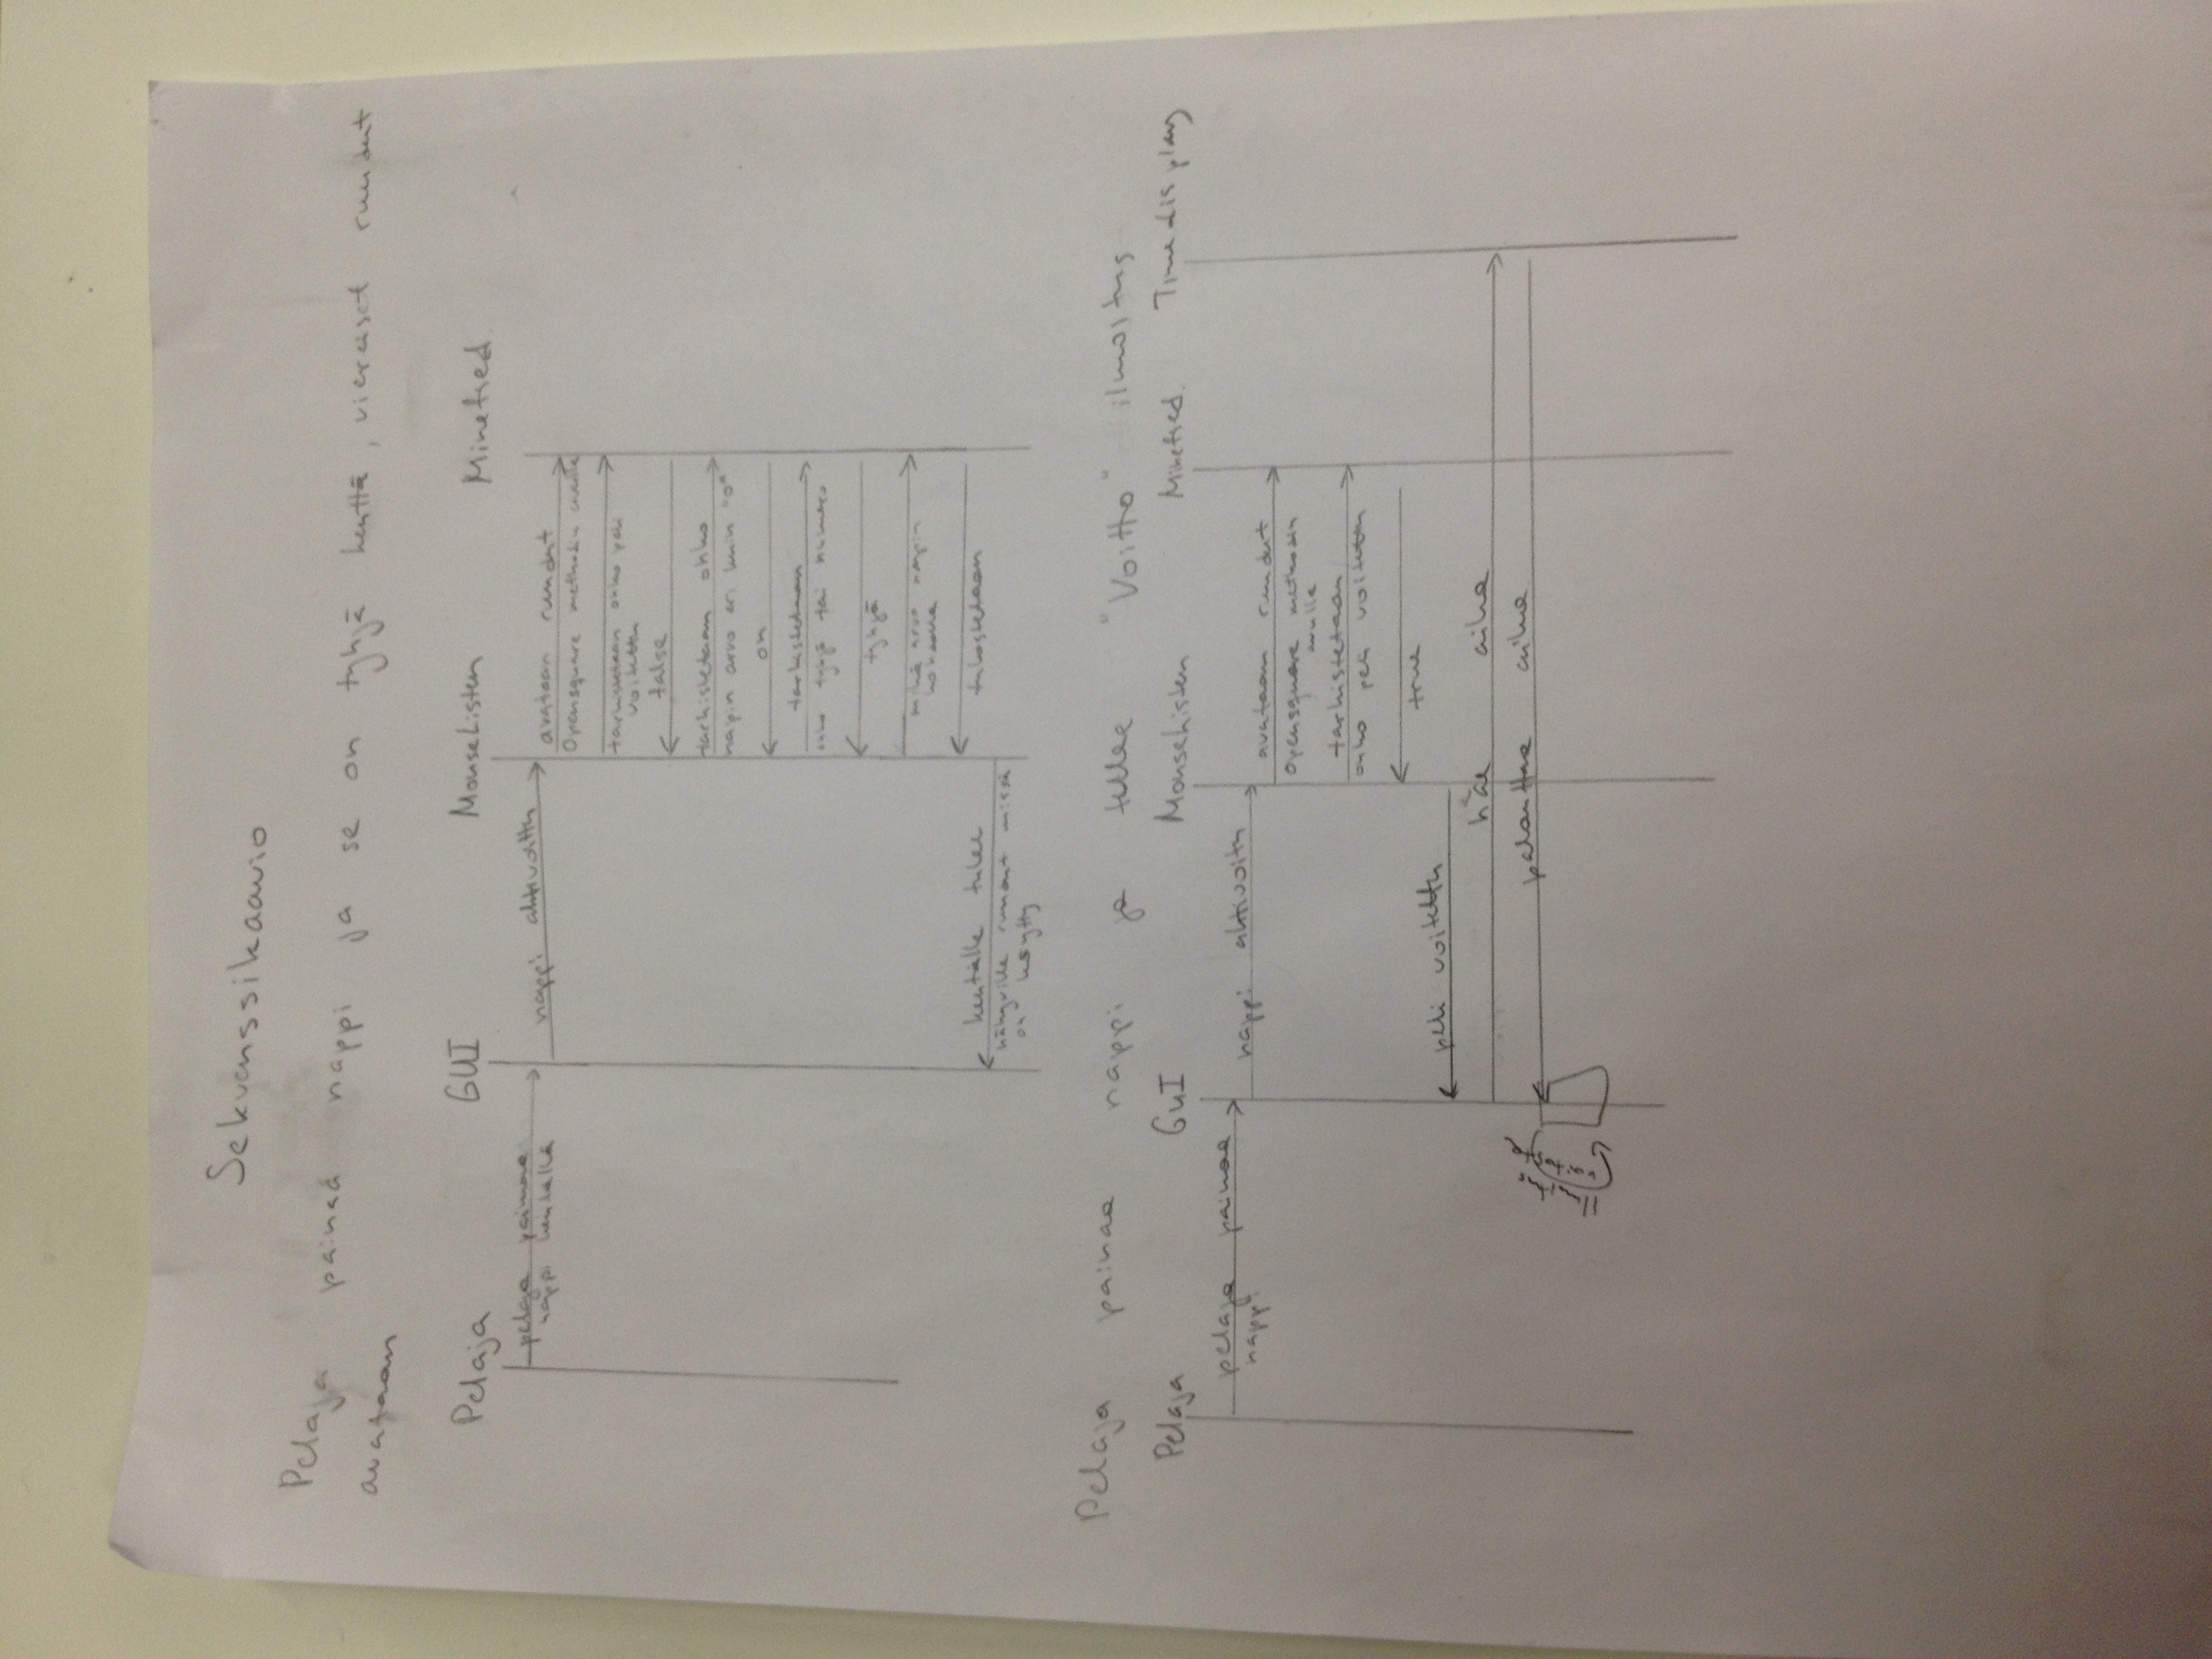 Sekvenssikaavio
Pelaja painaa nappi ja se on tyhjä kenttä, viereiset ruudut
avataan
Pelaja GUI MouseListen Minefied
pelaja painaa
nappi kentällä
nappi aktivoittu
avataan ruudut
Opensquare methodin avulla
tarkistetaan onko peli
voitettu
false
tarkistetaan onko
napin arvo eri kuin "0"
on
tarkistetaan
onko tyhjä tai numero
tyhjä
mikä arvo napin
kohdalla
tulostetaan
kentälle tulee
näkyville ruudut missä
on käytty
Pelaja painaa nappi ja tullee "Voitto" ilmoitus
Pelaja GUI MouseListen Minefied. Timedisplay
pelaja painaa
nappi
nappi aktivoitu
avataan ruudut
Opensquare methodin
avulla
tarkistetaan
onko peli voitettu
true
peli voitettu
häe aika
palauttaa aika
Ilmoitus
voitosta